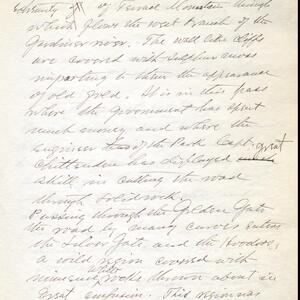 of Terrace Mountain through
which flows the west branch of the
Gardiner river. The wall like cliffs
are covered with sulphur moss
imparting to them the appearance
of old gold. It is in this pass
where the Government has spent
much money and where the
Engineer of the Park Capt.
Chittenden has displayed great
skill in cutting the road
through solid rock.
Passing through the Golden Gate
the road by many curves enters
the Silver Gate and the Hoodoos,
a wild region covered with
rocks thrown about in
great confusion. This region was